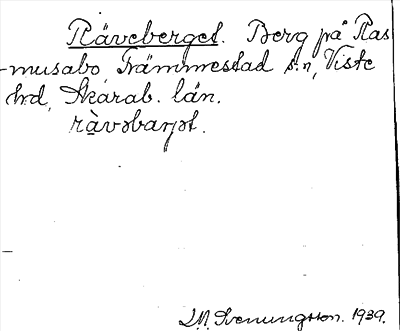 Räveberget. Berg på Ras
-musabo, Främmestad s:n, Viste
hrd, Skarab. län.
rằvəbarjət.
J.M. Svenungsson. 1939.